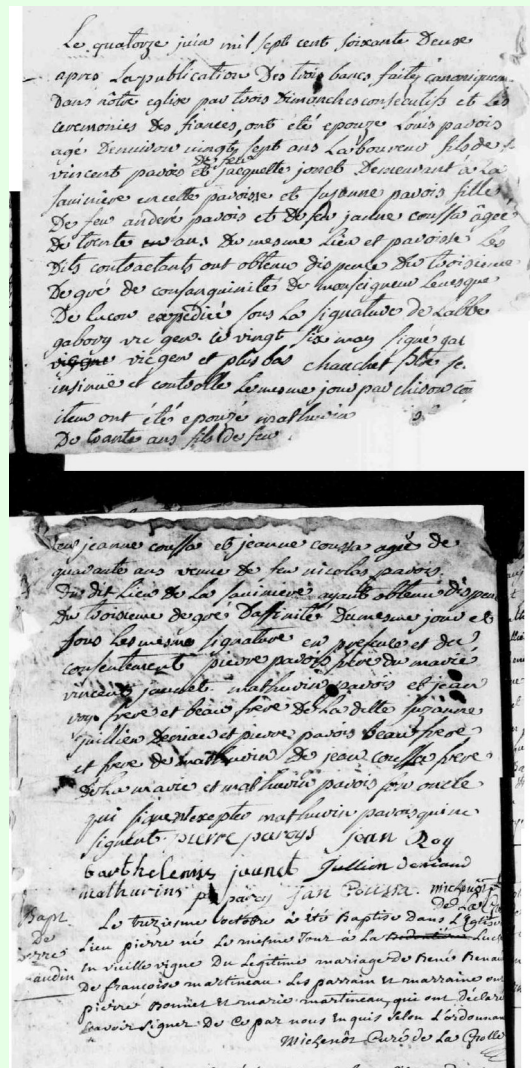 Le quatorze juin mil sept cent soixante Deux
apres La publication Des trois bancs faitte canoniquem
Dans nôtre eglise par trois Dimanches consecutifs et Les
ceremonies des fiances, ont été epouzé Louis pavois
agé Denviron vingt sept ans Laboureur fils de
vincent pavois et de feu jacquette jonet Demeurant à La
saminiere en cette paroisse et suzanne pavois fille
De feu andere pavois et de feu janne coussa âgée
de trente ans du mesme Lieu et paroisse Les
Dits contractants ont obtenu dispence Du troisieme
Degré de consanguinité de monseigneur Levesque
De Lucon expédiée sous La signature de Labbe
gabory vic gen. le vingt six may signé gab
vic gen et plus bas chauchet
insinué et controllé Le mesme jour par
item ont été epouzé mathurin
De trante ans fils de feu
feu jeanne coussa et jeanne coussa agée de
quarante ans veuve de feu nicolas pavois
Du dit Lieu de La saminiere ayants obtenu dispen
Du troisieme degré Daffinité Du mesme jour et
sous Les mesme signature en presence et du
consentement pierre pavois frere du marié
vincent jauchet mathurin pavois et jean
roy frere et beau frere De La ditte suzanne
jullien Deniau et pierre pavois beau frere
et frere de mathurin De jean coussa frere
De La mariée et mathurin pavois son oncle
qui signent excepter mathurin pavois qui ne
signent. pierre paroys jean Roy
barthelemy jaunet Jullien deniaud
mathurins p paroy Jan Coussa michenot
de La
Bapt
De
pierre
naudin
Le treziesme octobre à été Baptise Dans L'Eglise
Lieu pierre né Le mesme Jour à La
En vieille vigne Du Legitime mariage de René Renau
De francoise martineau Les parrain et marraine on
pierre Bonnet et marie martineau, qui ont déclaré
scavoir signer De Ce par nous Enquis selon L'ordonnan
Michenot Curé de La Grolle